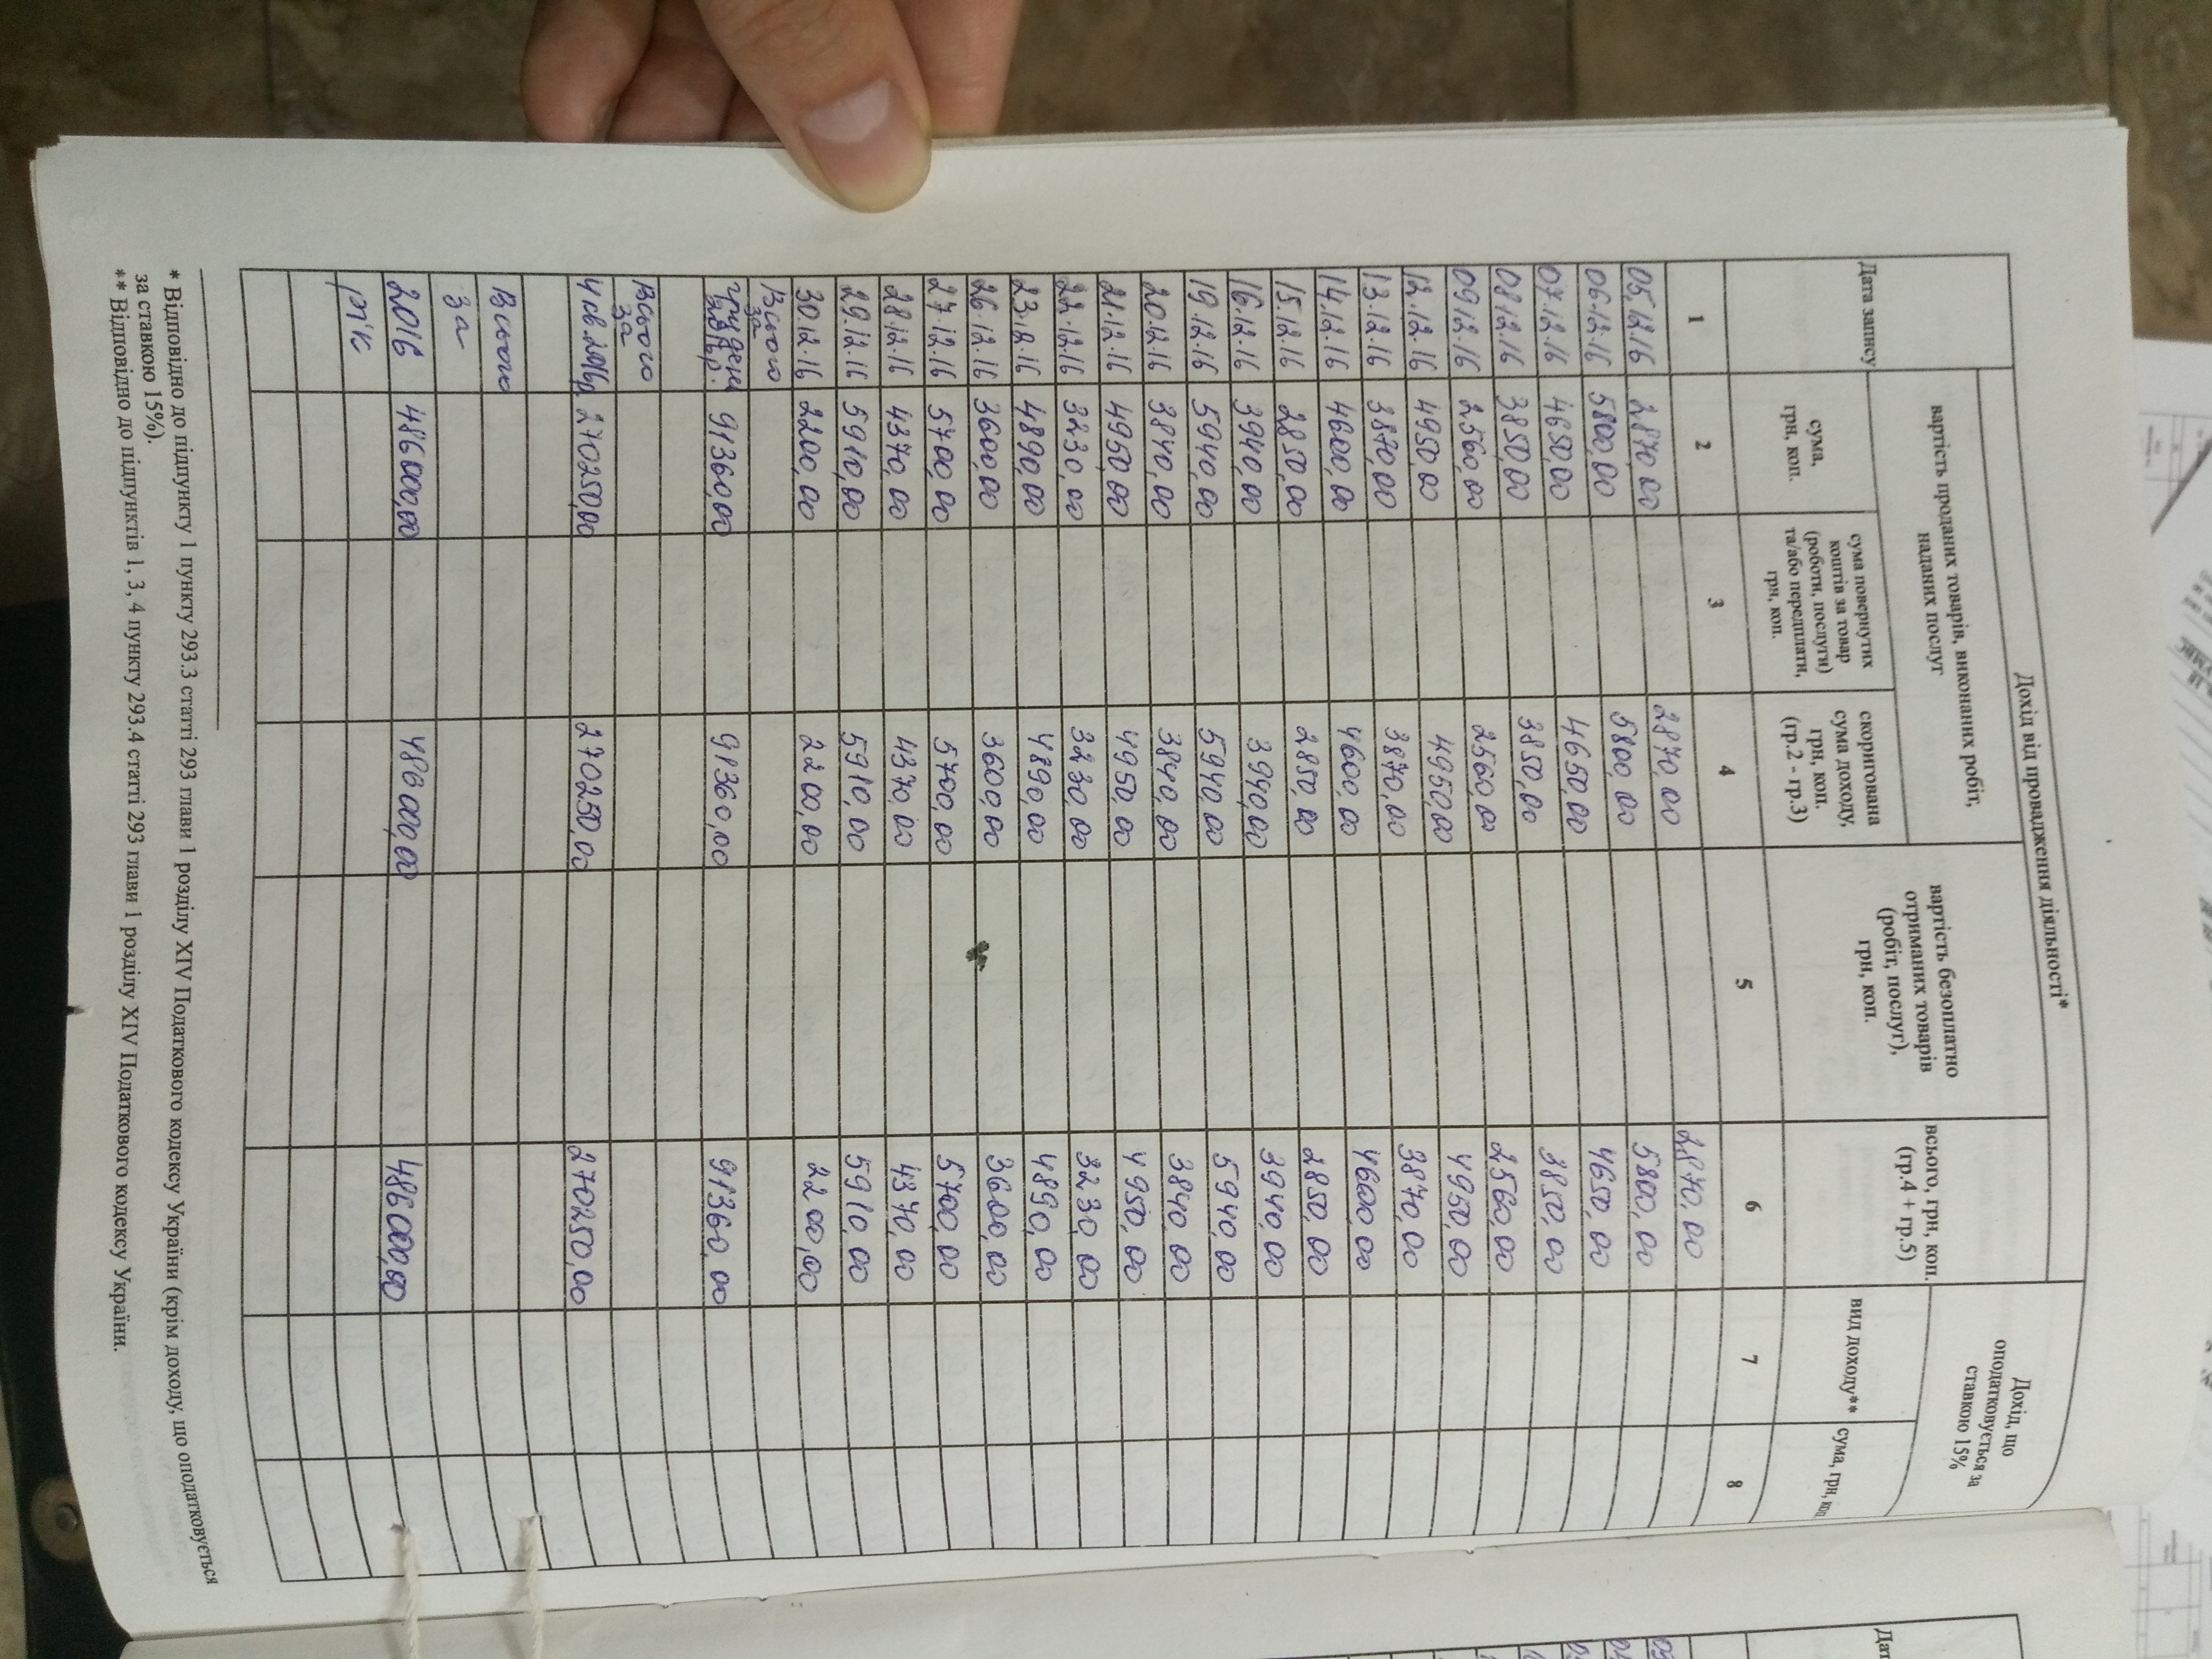 Дохід від провадження діяльності*
Дохід, що
оподатковується за
ставкою 15%
Дата запису
вартість проданих товарів, виконаних робіт,
наданих послуг
вартість безоплатно
отриманих товарів
(робіт, послуг),
грн, коп.
всього, грн, коп.
(гр.4 + гр.5)
вид доходу**
сума, грн, коп
сума,
грн, коп.
сума повернутих
коштів за товар
(роботи, послуги)
та/або передплати,
грн, коп.
скоригована
сума доходу,
грн, коп.
(гр.2 - гр.3)
1 2 3 4 5 6 7 8
05.12.16 2870,00 2870,00 2870,00
06.12.16 5800,00 5800,00 5800,00
07.12.16 4650,00 4650,00 4650,00
08.12.16 3850,00 3850,00 3850,00
09.12.16 2560,00 2560,00 2560,00
12.12.16 4950,00 4950,00 4950,00
13.12.16 3870,00 3870,00 3870,00
14.12.16 4600,00 4600,00 4600,00
15.12.16 2850,00 2850,00 2850,00
16.12.16 3940,00 3940,00 3940,00
19.12.16 5940,00 5940,00 5940,00
20.12.16 3840,00 3840,00 3840,00
21.12.16 4950,00 4950,00 4950,00
22.12.16 3230,00 3230,00 3230,00
23.12.16 4890,00 4890,00 4890,00
26.12.16 3600,00 3600,00 3600,00
27.12.16 5700,00 5700,00 5700,00
28.12.16 4370,00 4370,00 4370,00
29.12.16 5910,00 5910,00 5910,00
30.12.16 2200,00 2200,00 2200,00
Всього
за
грудень
2016р. 91360,00 91360,00 91360,00
Всього
за
4 кв.2016р 270250,00 270250,00 270250,00
Всього
за
2016 486000,00 486000,00 486000,00
рік
* Відповідно до підпункту 1 пункту 293.3 статті 293 глави 1 розділу XIV Податкового кодексу України (крім доходу, що оподатковується
за ставкою 15%).
** Відповідно до підпунктів 1, 3, 4 пункту 293.4 статті 293 глави 1 розділу XIV Податкового кодексу України.